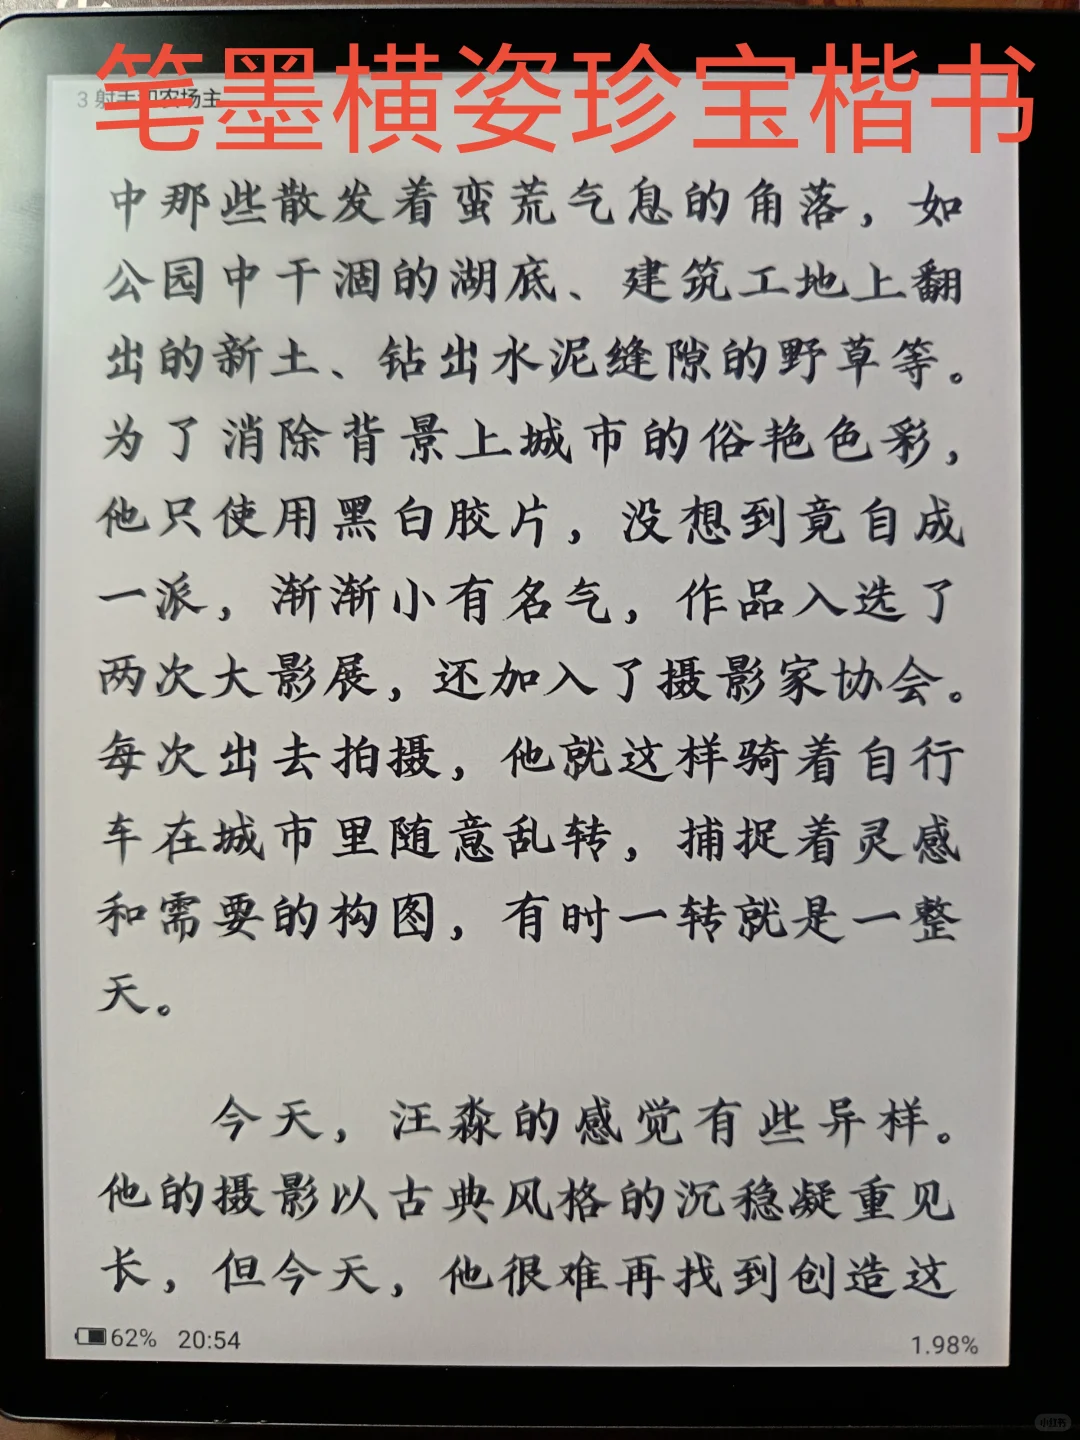 笔墨横姿珍宝楷书
3 射手和农场主
中那些散发着蛮荒气息的角落，如
公园中干涸的湖底、建筑工地上翻
出的新土、钻出水泥缝隙的野草等。
为了消除背景上城市的俗艳色彩，
他只使用黑白胶片，没想到竟自成
一派，渐渐小有名气，作品入选了
两次大影展，还加入了摄影家协会。
每次出去拍摄，他就这样骑着自行
车在城市里随意乱转，捕捉着灵感
和需要的构图，有时一转就是一整
天。
今天，汪淼的感觉有些异样。
他的摄影以古典风格的沉稳凝重见
长，但今天，他很难再找到创造这
62% 20:54
1.98%
小红书